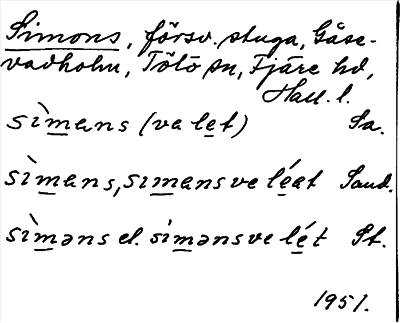 Simons, försv. stuga, Gåse-
vadholm, Tölö sn, Fjäre hd,
Hall. l.
sìmans (va let) Sa.
sìmans, simansve léat Sand.
sìməns el. siməns ve lét St.
1951.